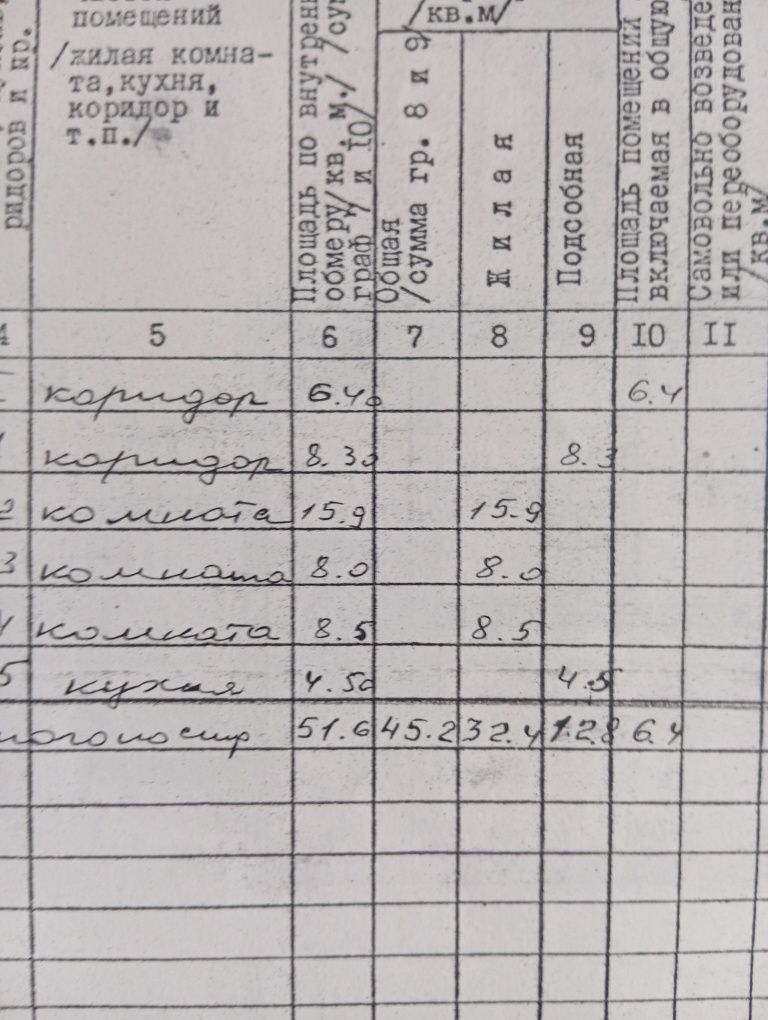 помещений
/жилая комна-
та,кухня,
коридор и
т.п./
ридоров и пр.
Площадь по
обмеру/кв. м./
граф 7 и 10/
/кв.м/
Общая
/сумма гр. 8 и 9/
Жилая
Подсобная
Площадь помещений
включаемая в общую
Самовольно
или
/кв.м/
4 5 6 7 8 9 IO II
коридор 6.40 6.4
1 коридор 8.30 8.3
2 комната 15.9 15.9
3 комната 8.0 8.0
4 комната 8.5 8.5
5 кухня 4.50 4.5
51.6 45.2 32.4 12.8 6.4